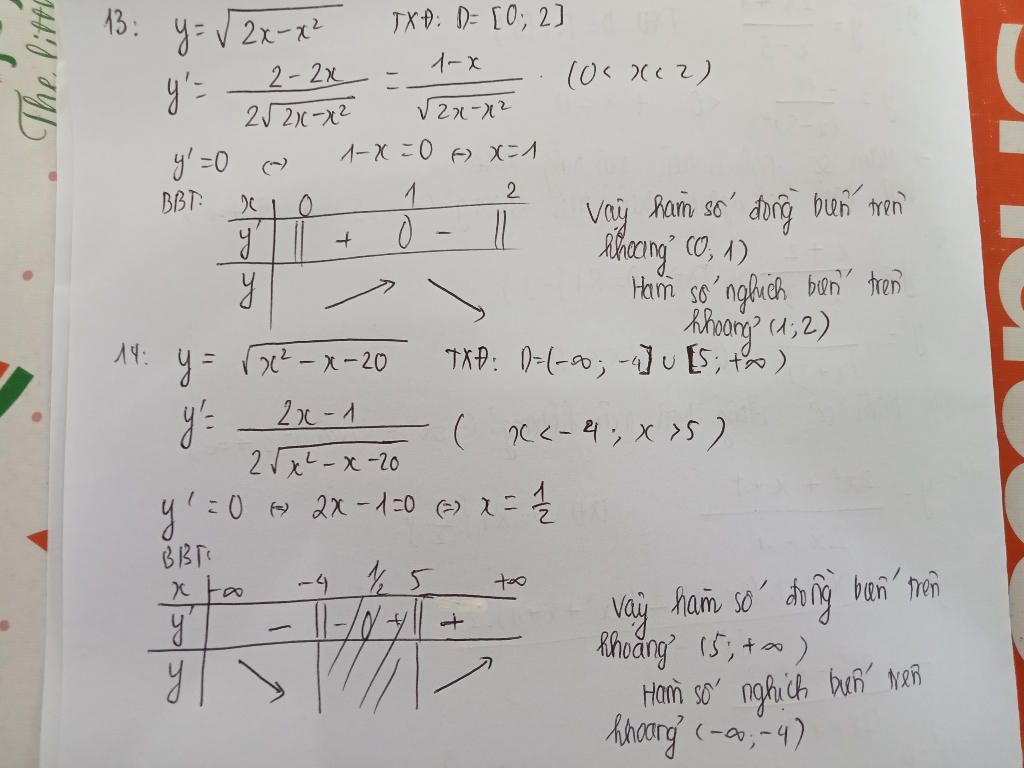 The litt
13: y = √(2x-x²) TXĐ: D = [0; 2]
y' = (2-2x)/(2√(2x-x²)) = (1-x)/√(2x-x²) . (0 < x < 2)
y' = 0 ⇔ 1-x = 0 ⇔ x = 1
BBT:
x 0 1 2
y' || + 0 - ||
y ↗ ↘
Vậy hàm số đồng biến trên
khoảng (0; 1)
Hàm số nghịch biến trên
khoảng (1; 2)
14: y = √(x² - x - 20) TXĐ: D = (-∞; -4] ∪ [5; +∞)
y' = (2x - 1)/(2√(x² - x - 20)) ( x < -4; x > 5 )
y' = 0 ⇔ 2x - 1 = 0 ⇔ x = 1/2
BBT:
x -∞ -4 1/2 5 +∞
y' - || - 0 + || +
y ↘ ↗
Vậy hàm số đồng biến trên
khoảng (5; +∞)
Hàm số nghịch biến trên
khoảng (-∞; -4)